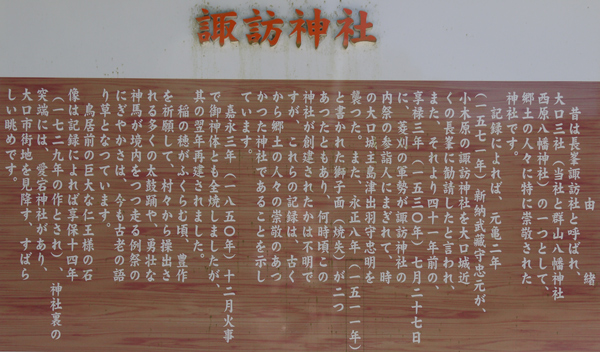 諏訪神社
由緒
昔は長峯諏訪社と呼ばれ、
大口三社(当社と群山八幡神社
西原八幡神社)の一つとして、
郷土の人々に特に崇敬された
神社です。
記録によれば、元亀二年
(一五七一年)新納武蔵守忠元が、
小木原の諏訪神社を大口城近
くの長峯に勧請したと言われ、
また、それより四十一年前の、
享禄三年(一五三〇年)七月二十七日
に、菱刈の軍勢が諏訪神社の
内祭の参詣人にまぎれて、時
の大口城主島津出羽守忠明を
襲った。また、永正八年(一五一一年)
と書かれた獅子面(焼失)が二つ
あったともあり、何時頃この
神社が創建されたかは不明で
すが、これらの記録は、古く
から郷土の人々の崇敬のあつ
かった神社であることを示し
ています。
嘉永三年(一八五〇年)十二月火事
で御神体とも全焼しましたが、
其の翌年再建されました。
稲の穂がふくらむ頃、豊作
を祈願して、村々から操出さ
れる多くの太鼓踊や、勇壮な
神馬が境内をつっ走る例祭の
にぎやかさは、今も古老の語
り草となっています。
鳥居前の巨大な仁王様の石
像は記録によれば享保十四年
(一七二九年の作とされ)、神社裏の
突端には、愛宕神社があり、
大口市街地を見降す、すばら
しい眺めです。